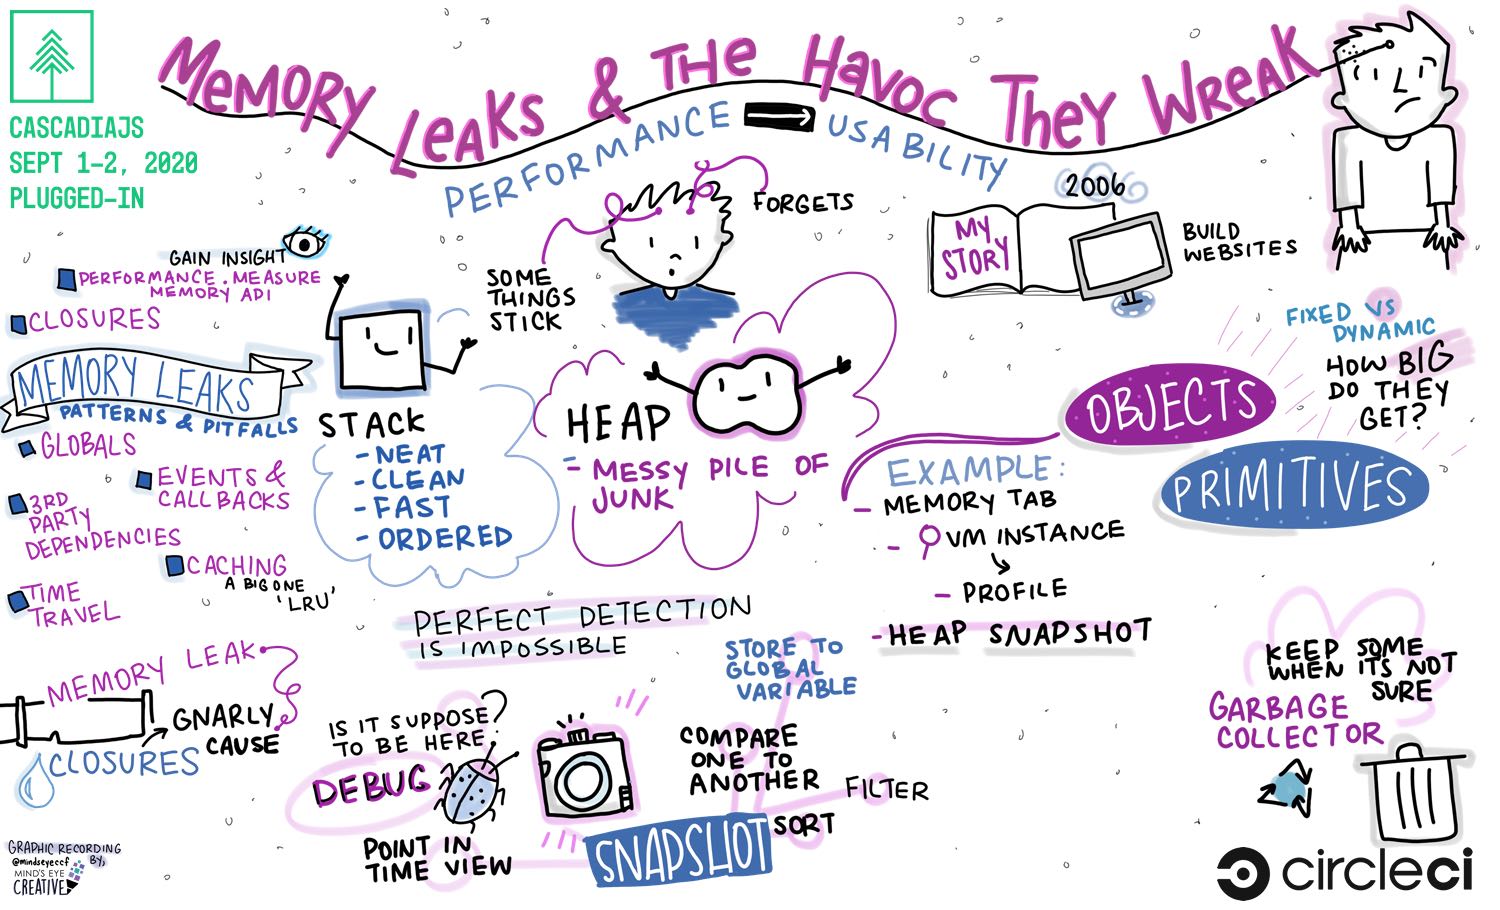 CASCADIAJS
SEPT 1-2, 2020
PLUGGED-IN
MEMORY LEAKS & THE HAVOC THEY WREAK
PERFORMANCE → USABILITY
SOME
THINGS
STICK
FORGETS
MY
STORY
2006
BUILD
WEBSITES
GAIN INSIGHT
PERFORMANCE.MEASURE
MEMORY API
CLOSURES
MEMORY LEAKS
PATTERNS & PITFALLS
GLOBALS
EVENTS &
CALLBACKS
3RD
PARTY
DEPENDENCIES
CACHING
A BIG ONE
'LRU'
TIME
TRAVEL
STACK
- NEAT
- CLEAN
- FAST
- ORDERED
HEAP
- MESSY PILE OF
JUNK
OBJECTS
PRIMITIVES
FIXED VS
DYNAMIC
HOW BIG
DO THEY
GET?
EXAMPLE:
- MEMORY TAB
- VM INSTANCE
- PROFILE
- HEAP SNAPSHOT
PERFECT DETECTION
IS IMPOSSIBLE
MEMORY LEAK
GNARLY
CAUSE
CLOSURES
IS IT SUPPOSE?
TO BE HERE.
DEBUG
POINT IN
TIME VIEW
STORE TO
GLOBAL
VARIABLE
COMPARE
ONE TO
ANOTHER
FILTER
SORT
SNAPSHOT
KEEP SOME
WHEN ITS NOT
SURE
GARBAGE
COLLECTOR
GRAPHIC RECORDING
BY,
@mindseyeccf
MIND'S EYE
CREATIVE
circleci